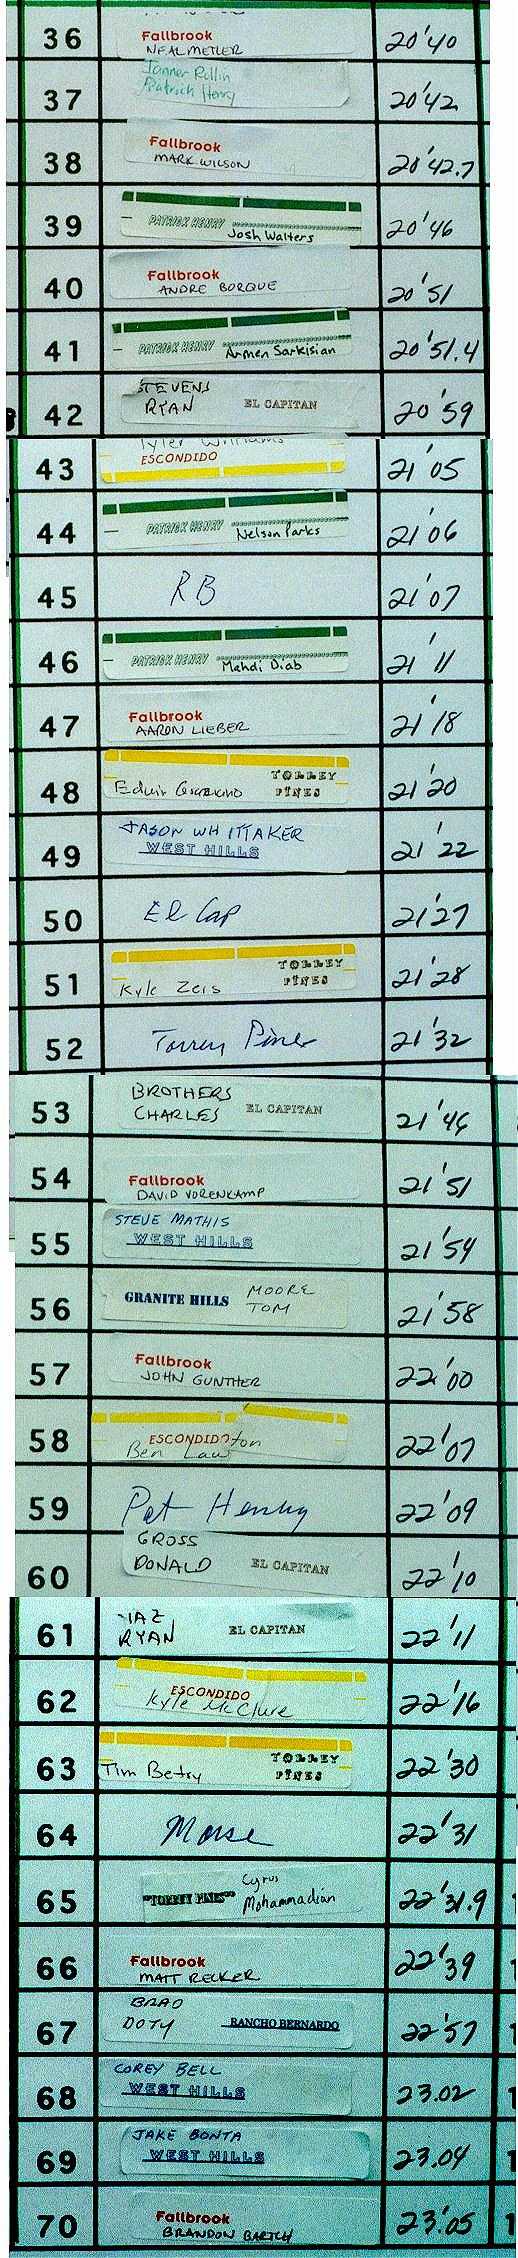 36 Fallbrook 20'40
NEAL METLER
37 Tanner Rullin 20'42
Patrick Henry
38 Fallbrook 20'42.7
MARK WILSON
39 PATRICK HENRY Josh Walters 20'46
40 Fallbrook 20'51
ANDRE BORQUE
41 PATRICK HENRY Armen Sarkisian 20'51.4
42 STEVENS
RYAN EL CAPITAN 20'59
43 Tyler Williams 21'05
ESCONDIDO
44 PATRICK HENRY Nelson Parks 21'06
45 RB 21'07
46 PATRICK HENRY Mehdi Diab 21'11
47 Fallbrook 21'18
AARON LIEBER
48 Edwin TORREY PINES 21'20
49 JASON WHITTAKER 21'22
WEST HILLS
50 El Cap 21'27
51 Kyle Zeis TORREY PINES 21'28
52 Torrey Pines 21'32
53 BROTHERS
CHARLES EL CAPITAN 21'46
54 Fallbrook 21'51
DAVID VORENKAMP
55 STEVE MATHIS 21'54
WEST HILLS
56 GRANITE HILLS MOORE TOM 21'58
57 Fallbrook 22'00
JOHN GUNTHER
58 ESCONDIDO 22'07
Ben Lawton
59 Pat Henry 22'09
60 GROSS
DONALD EL CAPITAN 22'10
61 IAZ
RYAN EL CAPITAN 22'11
62 ESCONDIDO 22'16
Kyle McClure
63 Tim Betry TORREY PINES 22'30
64 Morse 22'31
65 "TORREY PINES" Cyrus Mohammadian 22'31.9
66 Fallbrook 22'39
MATT RECKER
67 BRAD
DOTY RANCHO BERNARDO 22'57
68 COREY BELL 23.02
WEST HILLS
69 JAKE BONTA 23.04
WEST HILLS
70 Fallbrook 23.05
BRANDON BARTCH